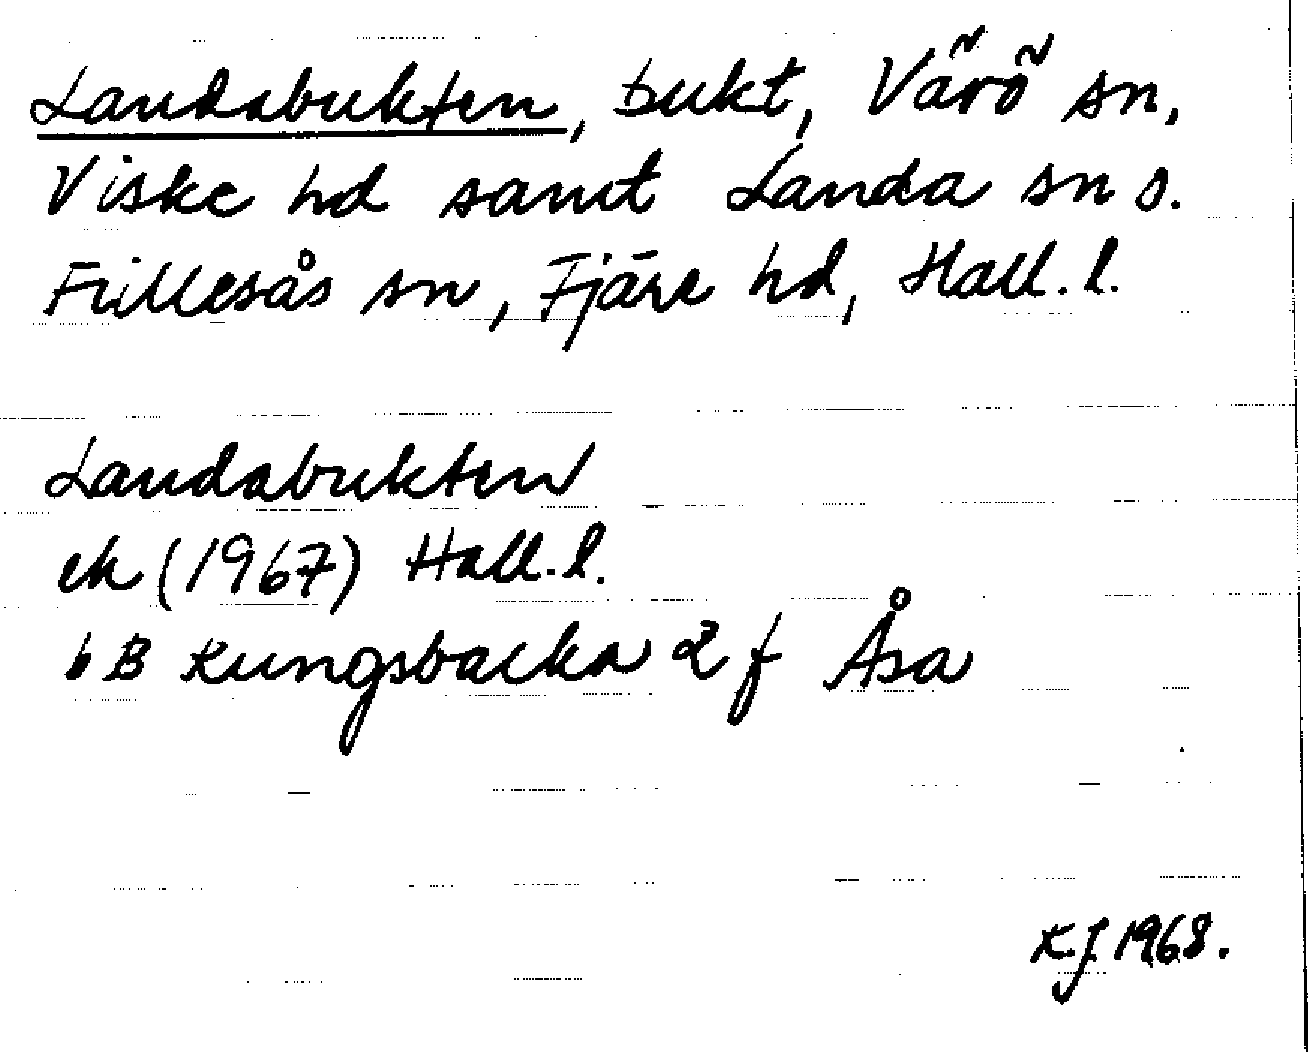 Landabukten, bukt, Värö sn,
Viske hd samt Landa sn o.
Frillesås sn, Fjäre hd, Hall. l.
Landabukten
ek (1967) Hall. l.
6B Kungsbacka 2 f Åsa
K.J. 1968.